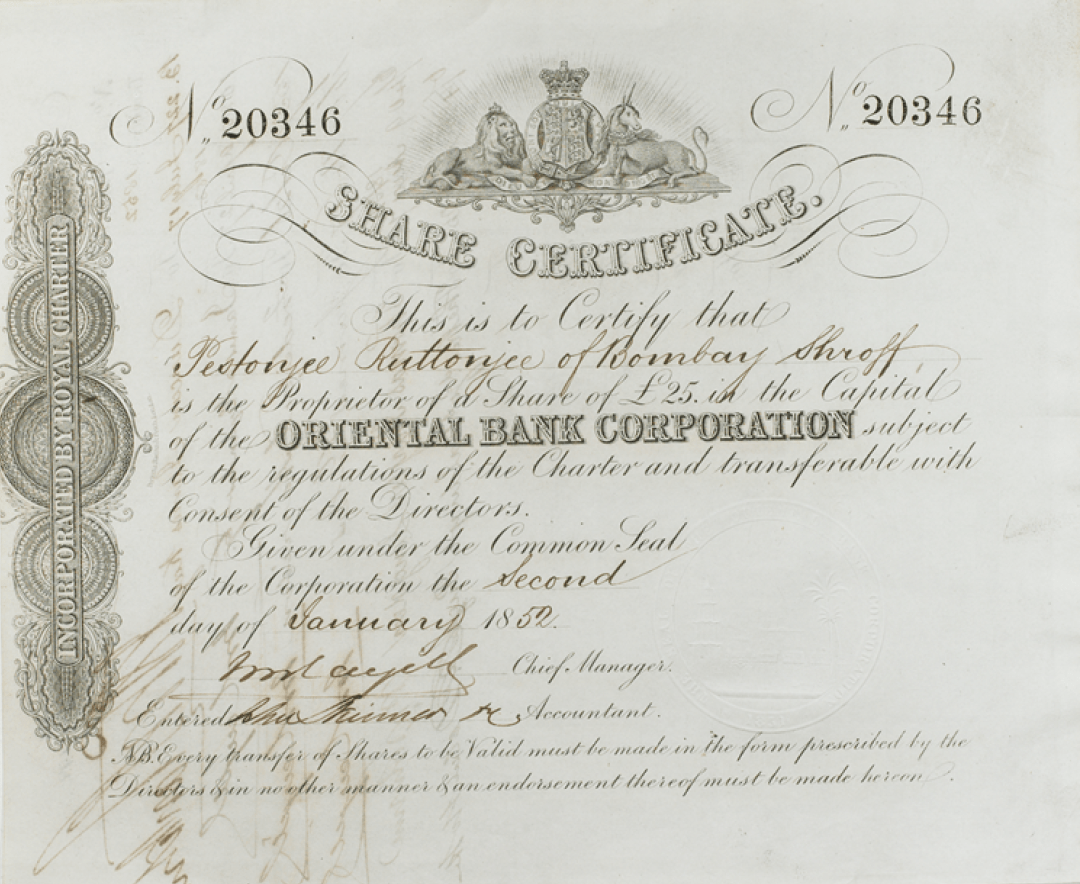 No. 20346
No. 20346
SHARE CERTIFICATE.
INCORPORATED BY ROYAL CHARTER
This is to Certify that
Pestonjee Ruttonjee of Bombay Shroff
is the Proprietor of a Share of £25. in the Capital
of the ORIENTAL BANK CORPORATION subject
to the regulations of the Charter and transferable with
Consent of the Directors.
Given under the Common Seal
of the Corporation the Second
day of January 1852.
Chief Manager.
Entered Accountant.
N.B. Every transfer of Shares to be Valid must be made in the form prescribed by the
Directors & in no other manner & an endorsement thereof must be made hereon.